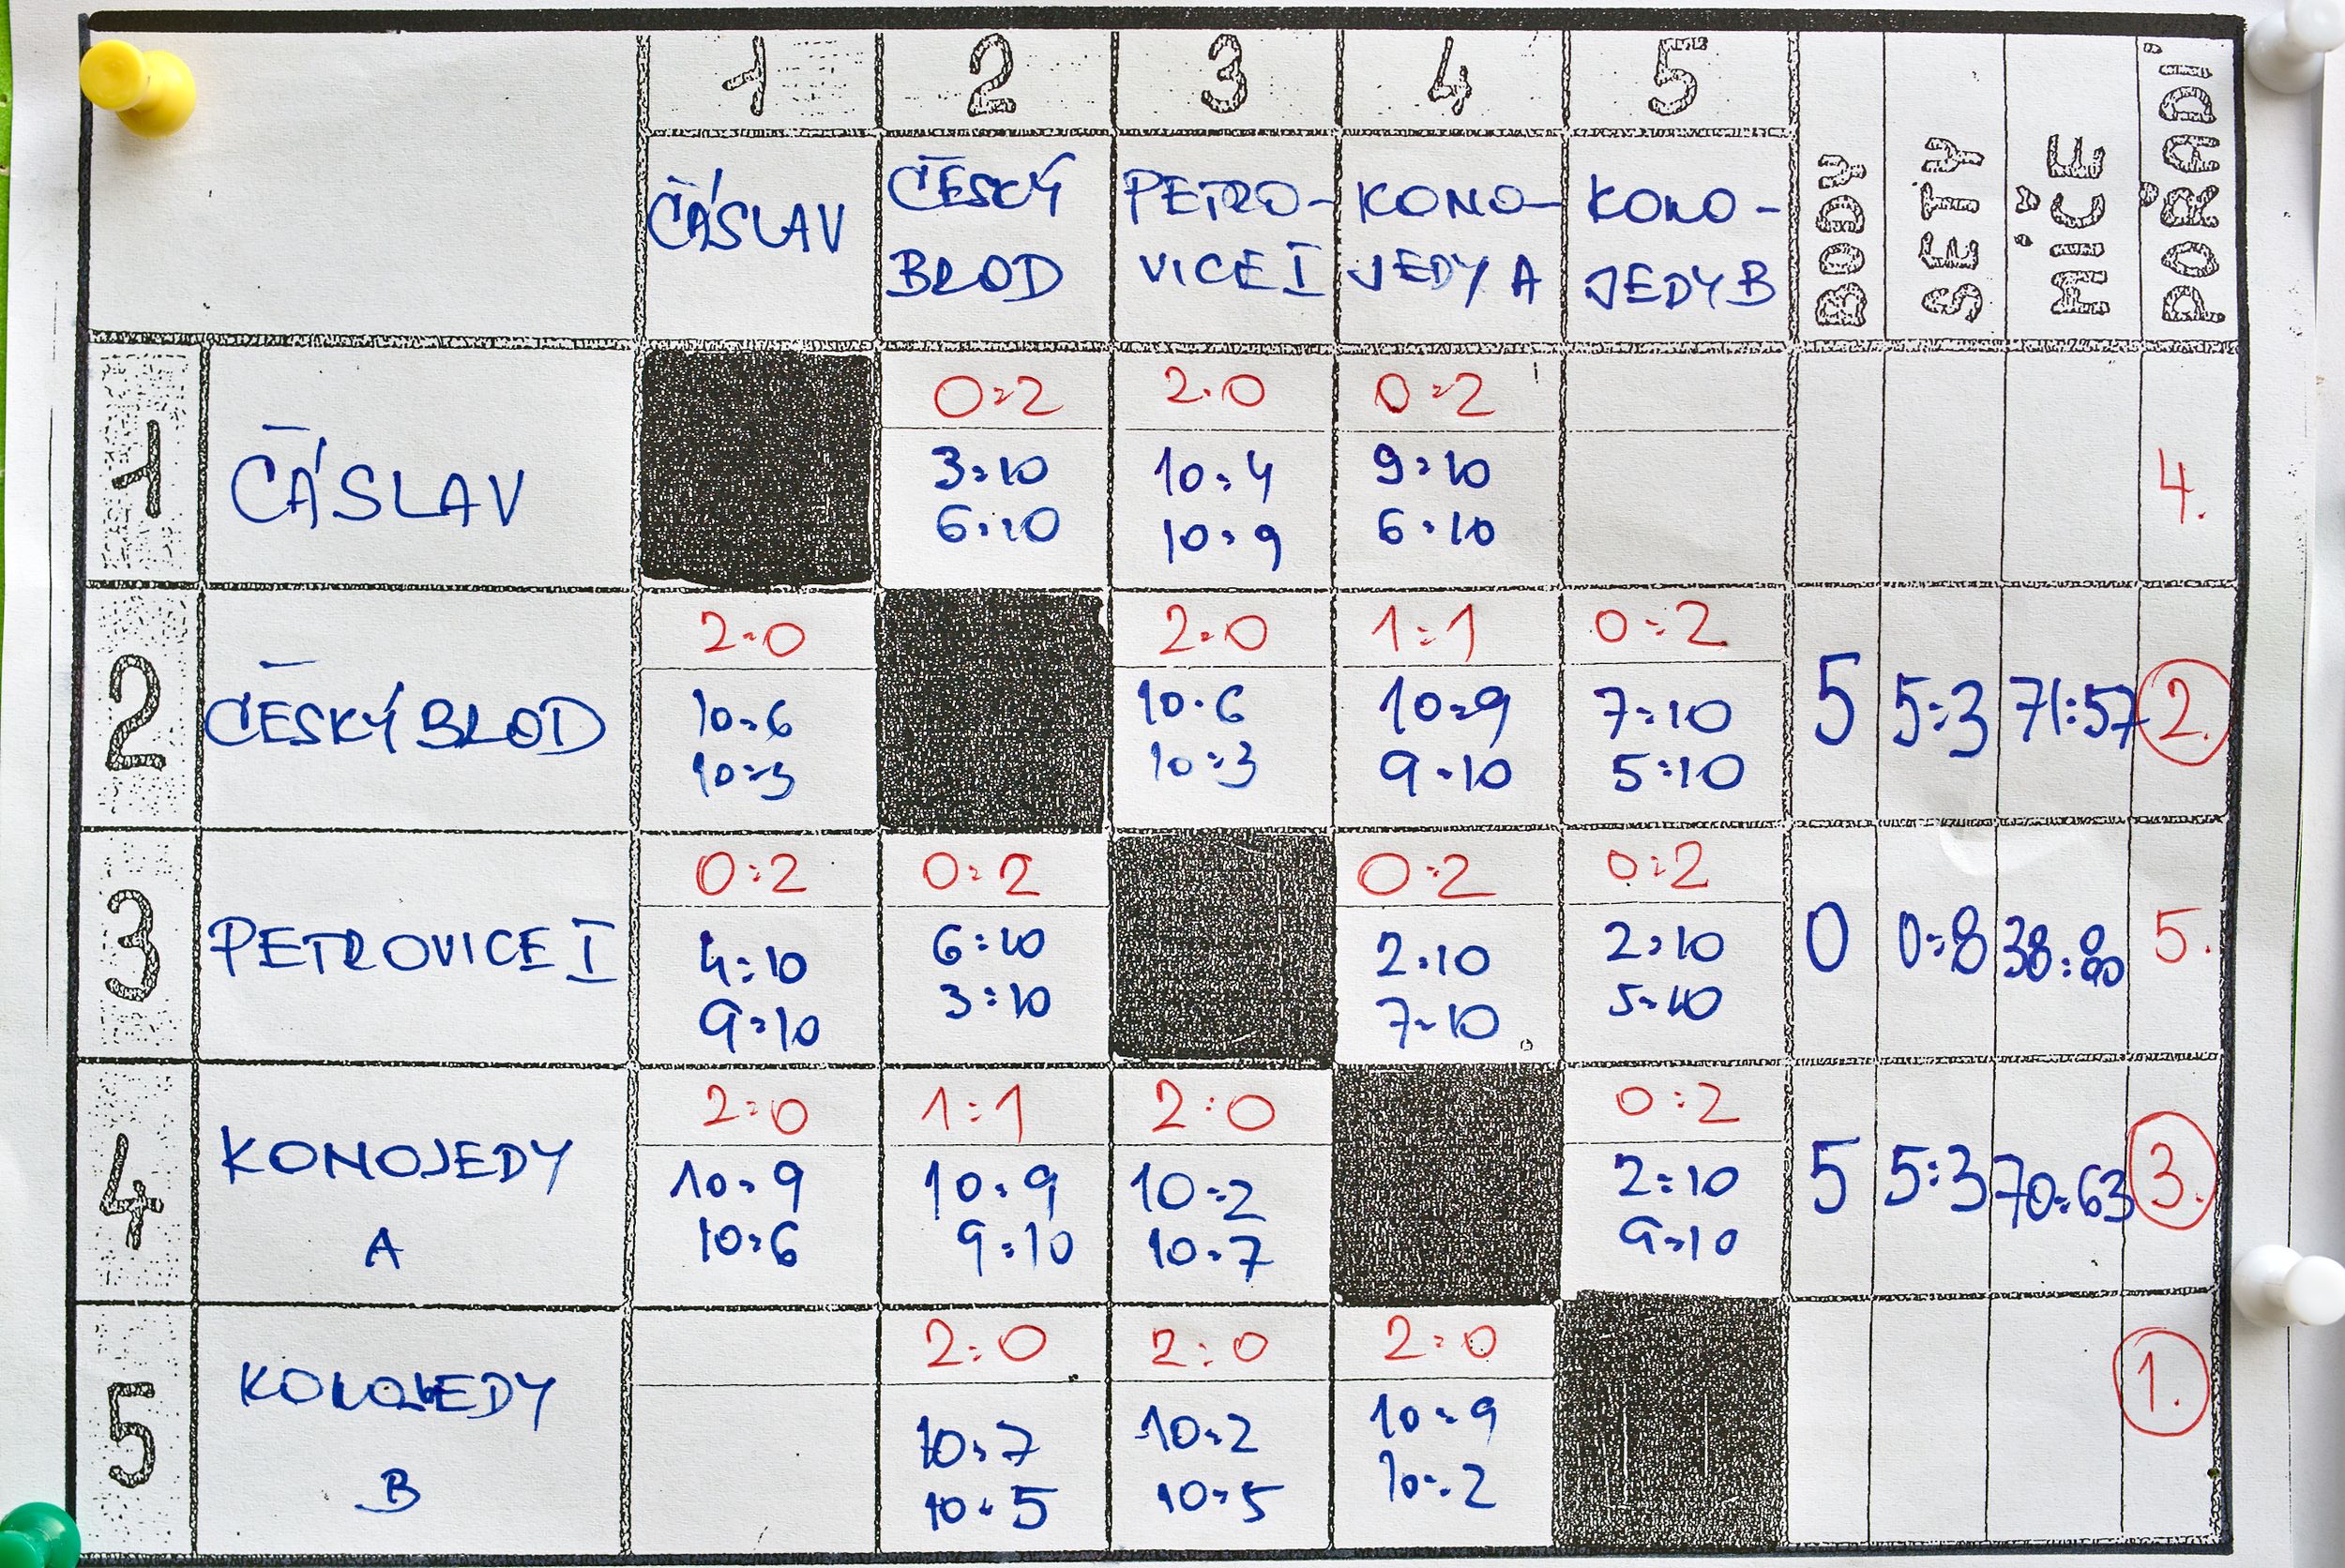 1 2 3 4 5
ČÁSLAV ČESKÝ BROD PETRO-VICE I KONO-JEDY A KONO-JEDY B BODY SETY MÍČE POŘADÍ
1 ČÁSLAV 0:2 2:0 0:2 4.
3:10 10:4 9:10
6:10 10:9 6:10
2 ČESKÝ BROD 2:0 2:0 1:1 0:2 5 5:3 71:57 2.
10:6 10:6 10:9 7:10
10:3 10:3 9:10 5:10
3 PETROVICE I 0:2 0:2 0:2 0:2 0 0:8 38:80 5.
4:10 6:10 2:10 2:10
9:10 3:10 7:10 5:10
4 KONOJEDY A 2:0 1:1 2:0 0:2 5 5:3 70:63 3.
10:9 10:9 10:2 2:10
10:6 9:10 10:7 9:10
5 KONOJEDY B 2:0 2:0 2:0 1.
10:7 10:2 10:9
10:5 10:5 10:2